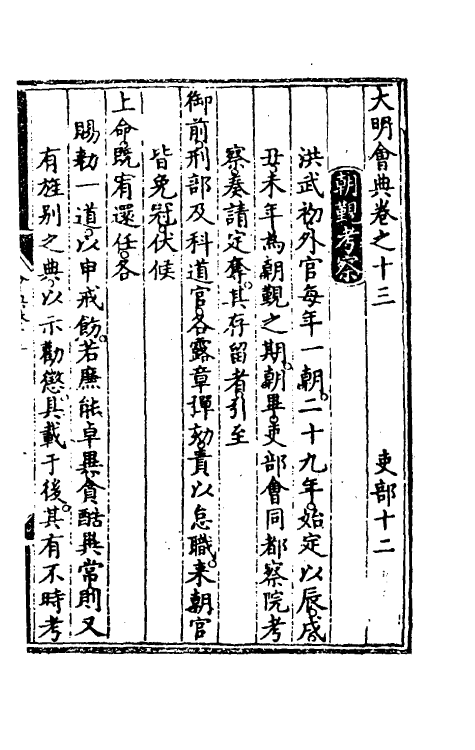 大明會典卷之十三 吏部十二
朝覲考察
洪武初外官每年一朝二十九年始定以辰戌
丑未年為朝覲之期朝畢吏部會同都察院考
察奏請定奪其存留者引至
御前刑部及科道官各露章彈劾責以怠職來朝官
皆免冠伏候
上命既宥還任各
賜勑一道以申戒飭若廉能卓異貪酷異常則又
有旌别之典以示勸懲具載于後其有不時考